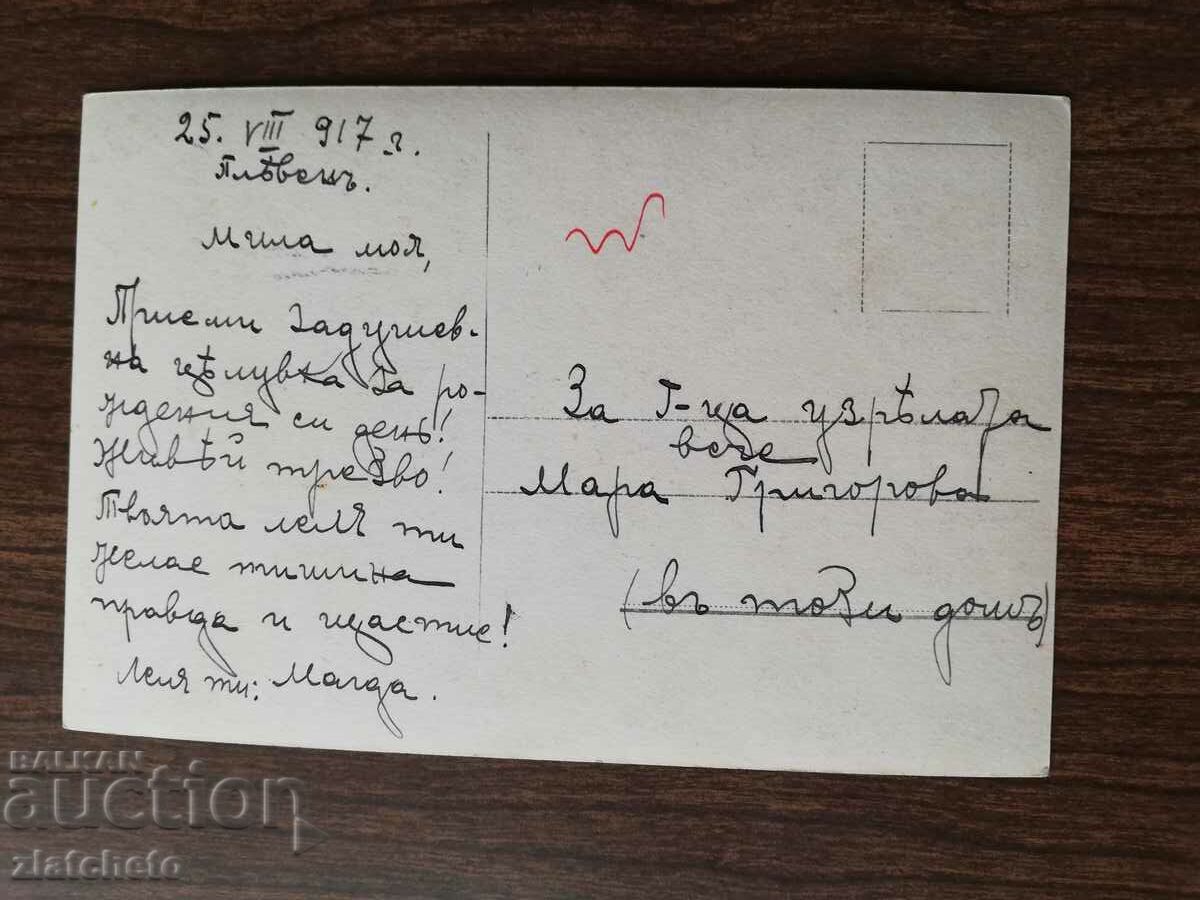 25. VIII 917 г.
Плѣвенъ.
Мила моя,
Приеми задушев-
на цѣлувка за ро-
ждения си день!
Живѣй трезво!
Твоята леля ти
желае тишина
правда и щастие!
Леля ти: Магда.
За Г-ца узрѣлата
вече
Мара Григорова
(въ този домъ)
BALKAN
auction
zlatcheto